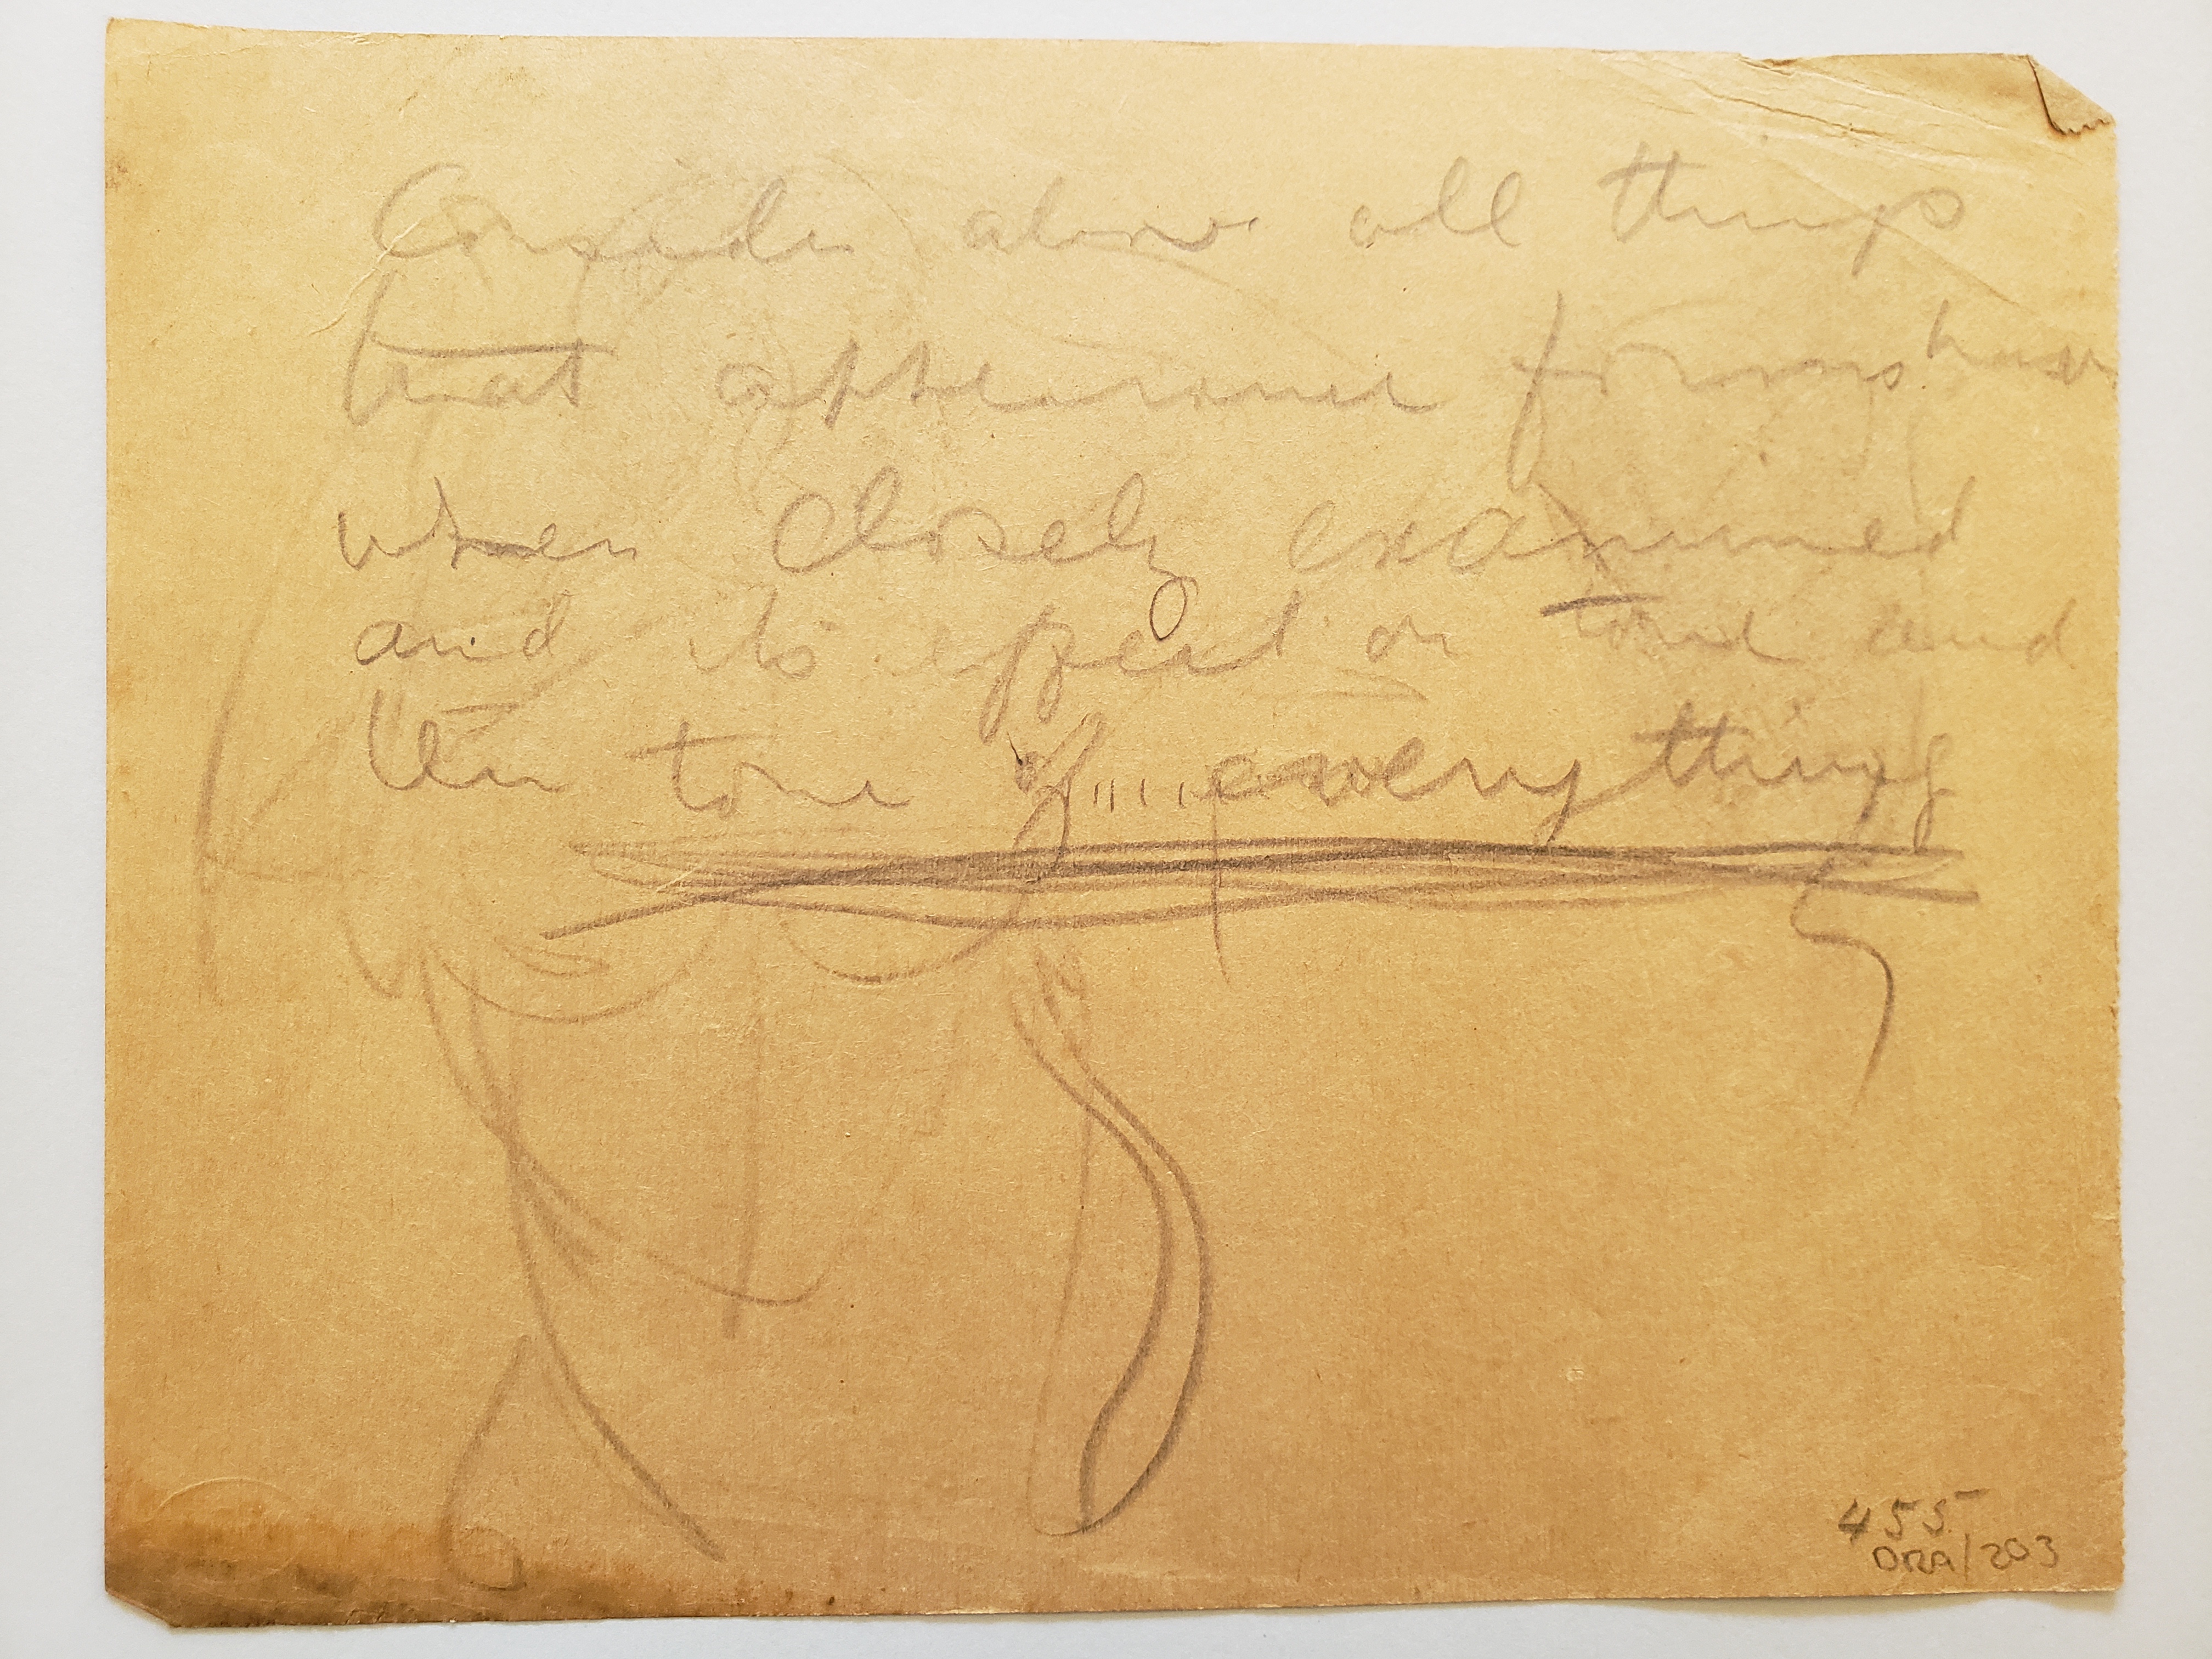 Consider above all things
that appearance forms have
when closely examined
and its effect on tone and
the tone of ..... everything
455
DRA/203